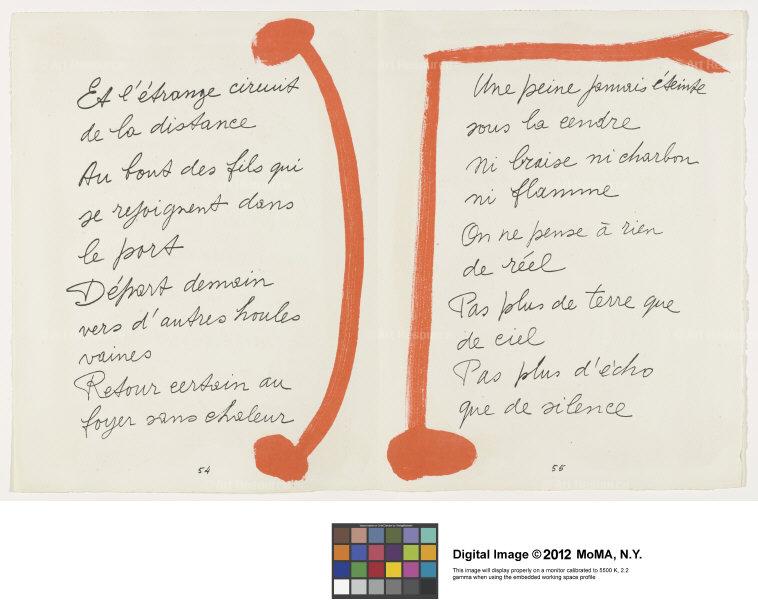 Et l'étrange circuit
de la distance
Au bout des fils qui
se rejoignent dans
le port
Départ demain
vers d'autres houles
vaines
Retour certain au
foyer sans chaleur
54
Une peine jamais éteinte
sous la cendre
Ni braise ni charbon
ni flamme
On ne pense à rien
de réel
Pas plus de terre que
de ciel
Pas plus d'écho
que de silence
55
Digital Image © 2012 MoMA, N.Y.
This image will display properly on a monitor calibrated to 5500 K, 2.2
gamma when using the embedded working space profile